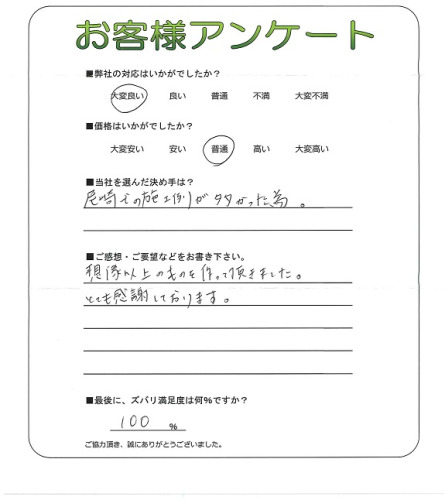 お客様アンケート
■弊社の対応はいかがでしたか？
大変良い 良い 普通 不満 大変不満
■価格はいかがでしたか？
大変安い 安い 普通 高い 大変高い
■当社を選んだ決め手は？
尼崎での施工例が多かった為。
■ご感想・ご要望などをお書き下さい。
想像以上のものを作って頂きました。
とても感謝しております。
■最後に、ズバリ満足度は何%ですか？
100 %
ご協力頂き、誠にありがとうございました。